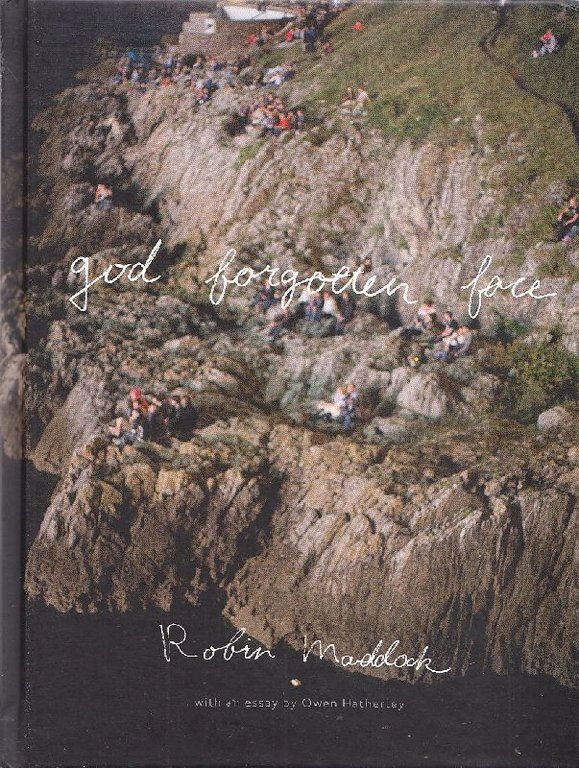 god forgotten face
Robin Maddock
with an essay by Owen Hatherley